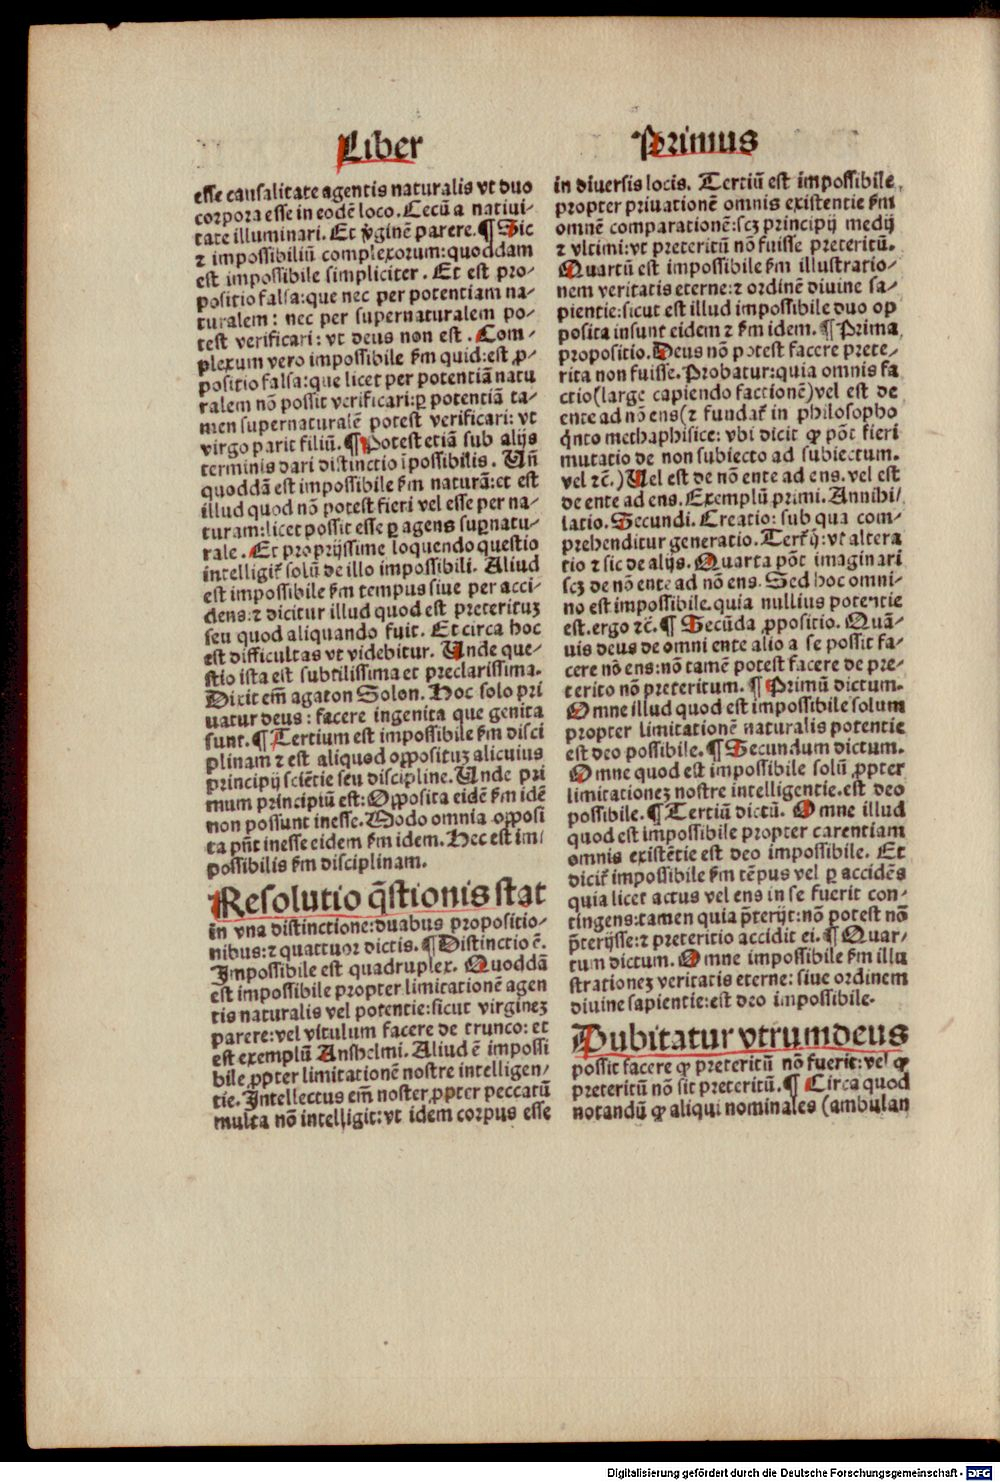 Liber
esse causalitate agentis naturalis vt duo
corpora esse in eodē loco. Cecū a natiui-
tate illuminari. Et v̾ginē parere. ¶ Sic
⁊ impossibiliū complexorum: quoddam
est impossibile simpliciter. Et est pro-
positio falsa: que nec per potentiam na-
turalem: nec per supernaturalem po-
test verificari: vt deus non est. Com-
plexum vero impossibile ẜm quid: est ꝓ-
positio falsa: que licet per potentiā natu
ralem nō possit verificari: ꝑ potentiā ta-
men supernaturalē potest verificari: vt
virgo parit filiū. ¶ Potest etiā sub alijs
terminis dari distinctio īpossibilis. Un̄
quoddā est impossibile ẜm naturā: et est
illud quod nō potest fieri vel esse per na-
turam: licet possit esse ꝑ agens suꝑnatu-
rale. Et proprijssime loquendo questio
intelligit᷑ solū de illo impossibili. Aliud
est impossibile ẜm tempus siue per acci
dens: ⁊ dicitur illud quod est preterituꝫ
seu quod aliquando fuit. Et circa hoc
est difficultas vt videbitur. Unde que-
stio ista est subtilissima et preclarissima.
Dixit em̄ agaton Solon. Hoc solo pri
uatur deus: facere ingenita que genita
sunt. ¶ Tertium est impossibile ẜm disci
plinam ⁊ est aliquod oppositūꝫ alicuius
principij sciētie seu discipline. Unde pri
mum principiū est: Opposita eidē ẜm idē
non possunt inesse. Modo omnia opposi
ta pn̄t inesse eidem ẜm idem. Hec est im-
possibilis ẜm disciplinam.
Resolutio q̄stionis stat
in vna distinctione: duabus propositio-
nibus: ⁊ quattuor dictis. ¶ Distinctio ē.
Impossibile est quadruplex. Quoddā
est impossibile propter limitationē agen
tis naturalis vel potentie: sicut virgineꝫ
parere: vel vitulum facere de trunco: et
est exemplū Anshelmi. Aliud ē impossi
bile ꝓpter limitationē nostre intelligen-
tie. Intellectus em̄ noster ꝓpter peccatū
multa nō intelligit: vt idem corpus esse
Primus
in diuersis locis. Tertiū est impossibile
propter priuationē omnis existentie ẜm
omnē comparationē: scꝫ principij medij
⁊ vltimi: vt preteritū nō fuisse preteritū.
Quartū est impossibile ẜm illustratio-
nem veritatis eterne: ⁊ ordinē diuine sa-
pientie: sicut est illud impossibile duo op
posita insunt eidem ⁊ ẜm idem. ¶ Prima
propositio. Deus nō potest facere prete-
rita non fuisse. Probatur: quia omnis fa
ctio (large capiendo factionē) vel est de
ente ad nō ens (⁊ fundat᷑ in philosopho
q̇nto methaphisice: vbi dicit ꝙ pōt fieri
mutatio de non subiecto ad subiectum.
vel ⁊c̄.) Uel est de nō ente ad ens. vel est
de ente ad ens. Exemplū primi. Annihi/
latio. Secundi. Creatio: sub qua com-
prehenditur generatio. Tert᷑ij: vt altera
tio ⁊ sic de alijs. Quarta pōt imaginari
scꝫ de nō ente ad nō ens. Sed hoc omni-
no est impossibile. quia nullius potentie
est. ergo ⁊c̄. ¶ Secūda ꝓpositio. Quā-
uis deus de omni ente alio a se possit fa-
cere nō ens: nō tamē potest facere de pre-
terito nō preteritum. ¶ Primū dictum.
Omne illud quod est impossibile solum
propter limitationē naturalis potentie
est deo possibile. ¶ Secundum dictum.
Omne quod est impossibile solū ꝓpter
limitationeꝫ nostre intelligentie. est deo
possibile. ¶ Tertiū dictū. Omne illud
quod est impossibile propter carentiam
omnis existētie est deo impossibile. Et
dicit᷑ impossibile ẜm tēpus vel ꝑ accidēs
quia licet actus vel ens in se fuerit con-
tingens: tamen quia p̄terijt: nō potest nō
p̄terijsse: ⁊ preteritio accidit ei. ¶ Quar-
tum dictum. Omne impossibile ẜm illu
strationeꝫ veritatis eterne: siue ordinem
diuine sapientie: est deo impossibile.
Dubitatur vtrum deus
possit facere ꝙ preteritū nō fuerit: vel ꝙ
preteritū nō sit preteritū. ¶ Circa quod
notandū ꝙ aliqui nominales (ambulan
Digitalisierung gefördert durch die Deutsche Forschungsgemeinschaft - DFG